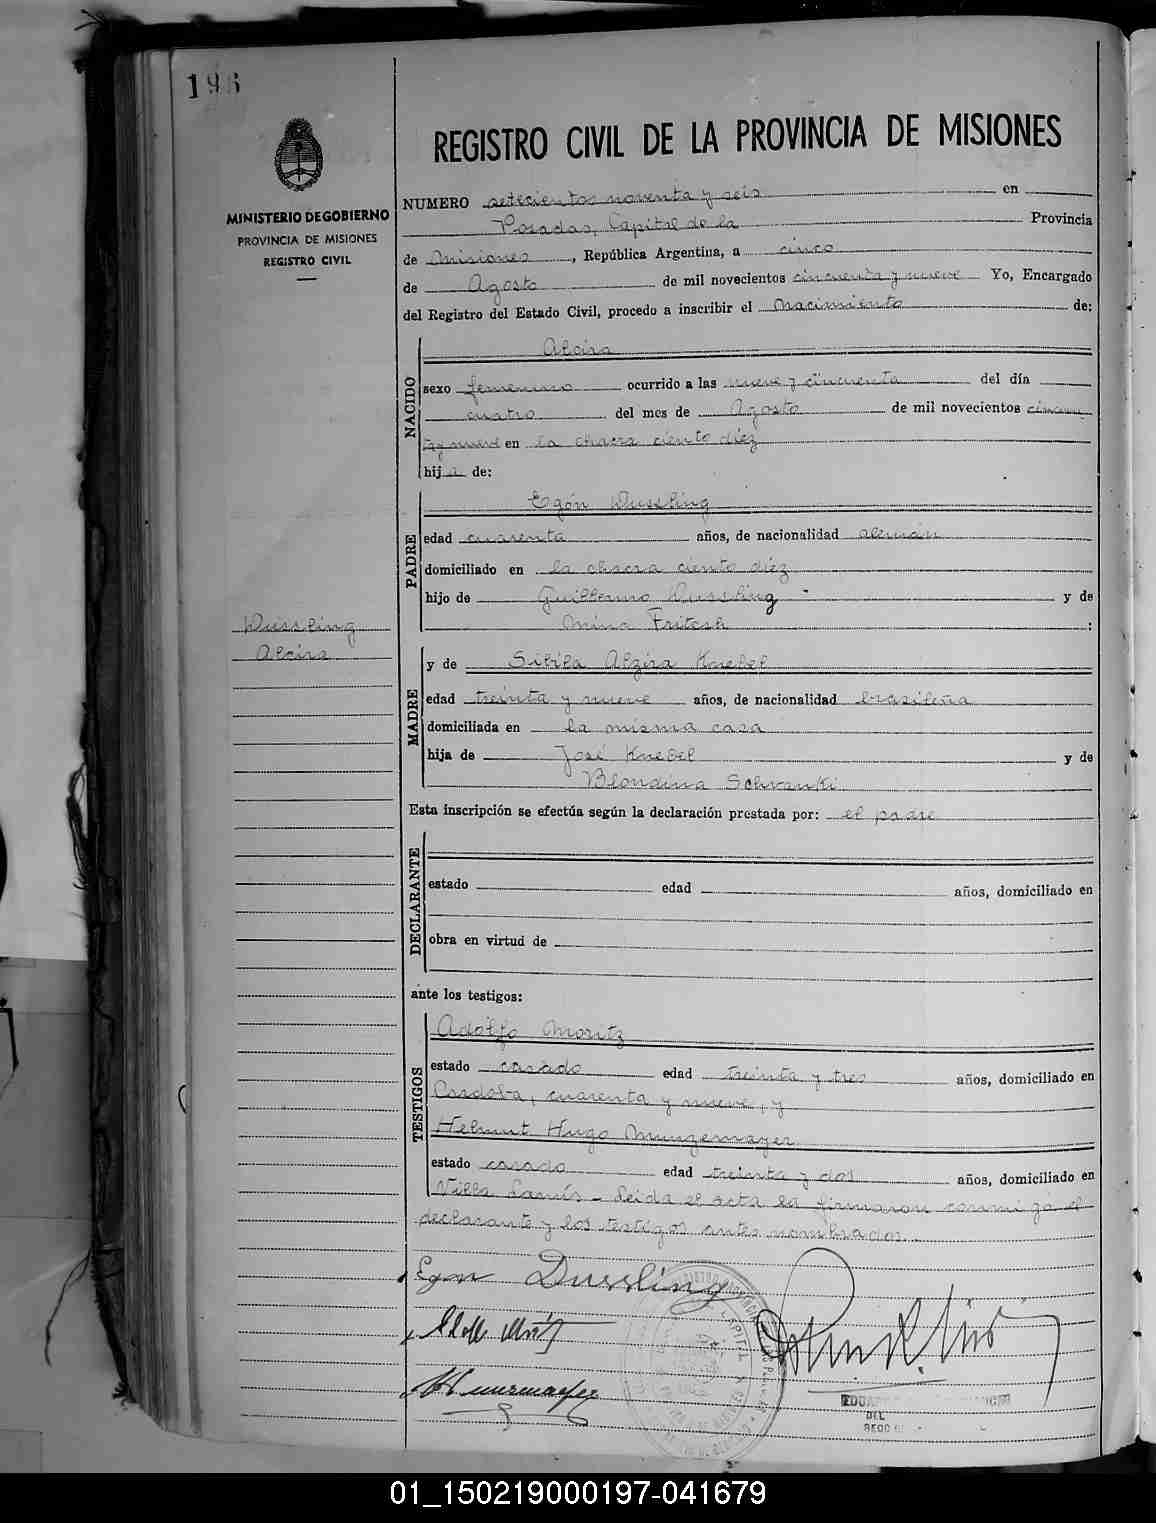 196
MINISTERIO DE GOBIERNO
PROVINCIA DE MISIONES
REGISTRO CIVIL
REGISTRO CIVIL DE LA PROVINCIA DE MISIONES
NUMERO setecientos noventa y seis en
Posadas, Capital de la Provincia
de Misiones, República Argentina, a cinco
de Agosto de mil novecientos cincuenta y nueve Yo, Encargado
del Registro del Estado Civil, procedo a inscribir el nacimiento de:
NACIDO
Alcira
sexo femenino ocurrido a las nueve y cincuenta del día
cuatro del mes de Agosto de mil novecientos cincuen
ta y nueve en la chacra ciento diez
hija de:
PADRE
Egón Dussling
edad cuarenta años, de nacionalidad alemán
domiciliado en la chacra ciento diez
hijo de Guillermo Dussling y de
Mina Fritesh :
Dussling
Alcira
MADRE
y de Sibila Alzira Knebel
edad treinta y nueve años, de nacionalidad brasileña
domiciliada en la misma casa
hija de José Knebel y de
Blondina Schvanki
Esta inscripción se efectúa según la declaración prestada por: el padre
DECLARANTE
estado edad años, domiciliado en
obra en virtud de
ante los testigos:
TESTIGOS
Adolfo Moritz
estado casado edad treinta y tres años, domiciliado en
Cordoba, cuarenta y nueve, y
Helmut Hugo Munzemayer
estado casado edad treinta y dos años, domiciliado en
Villa Lanús - Leida el acta la firmaron conmigo el
declarante y los testigos antes nombrados.
Egon Dussling
DEL
01_150219000197-041679